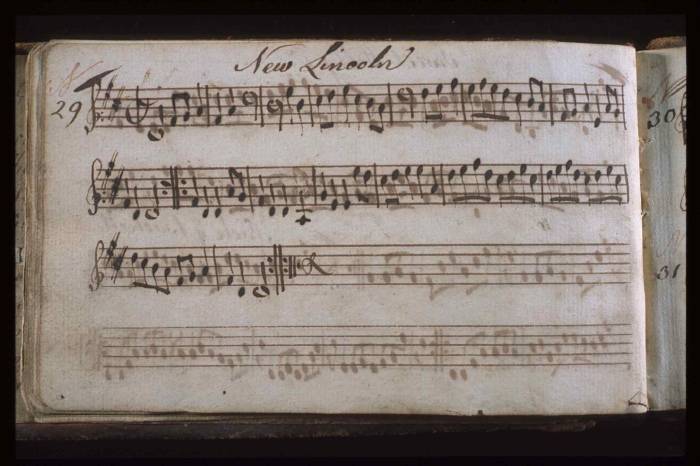 New Lincoln
N
29
30
31